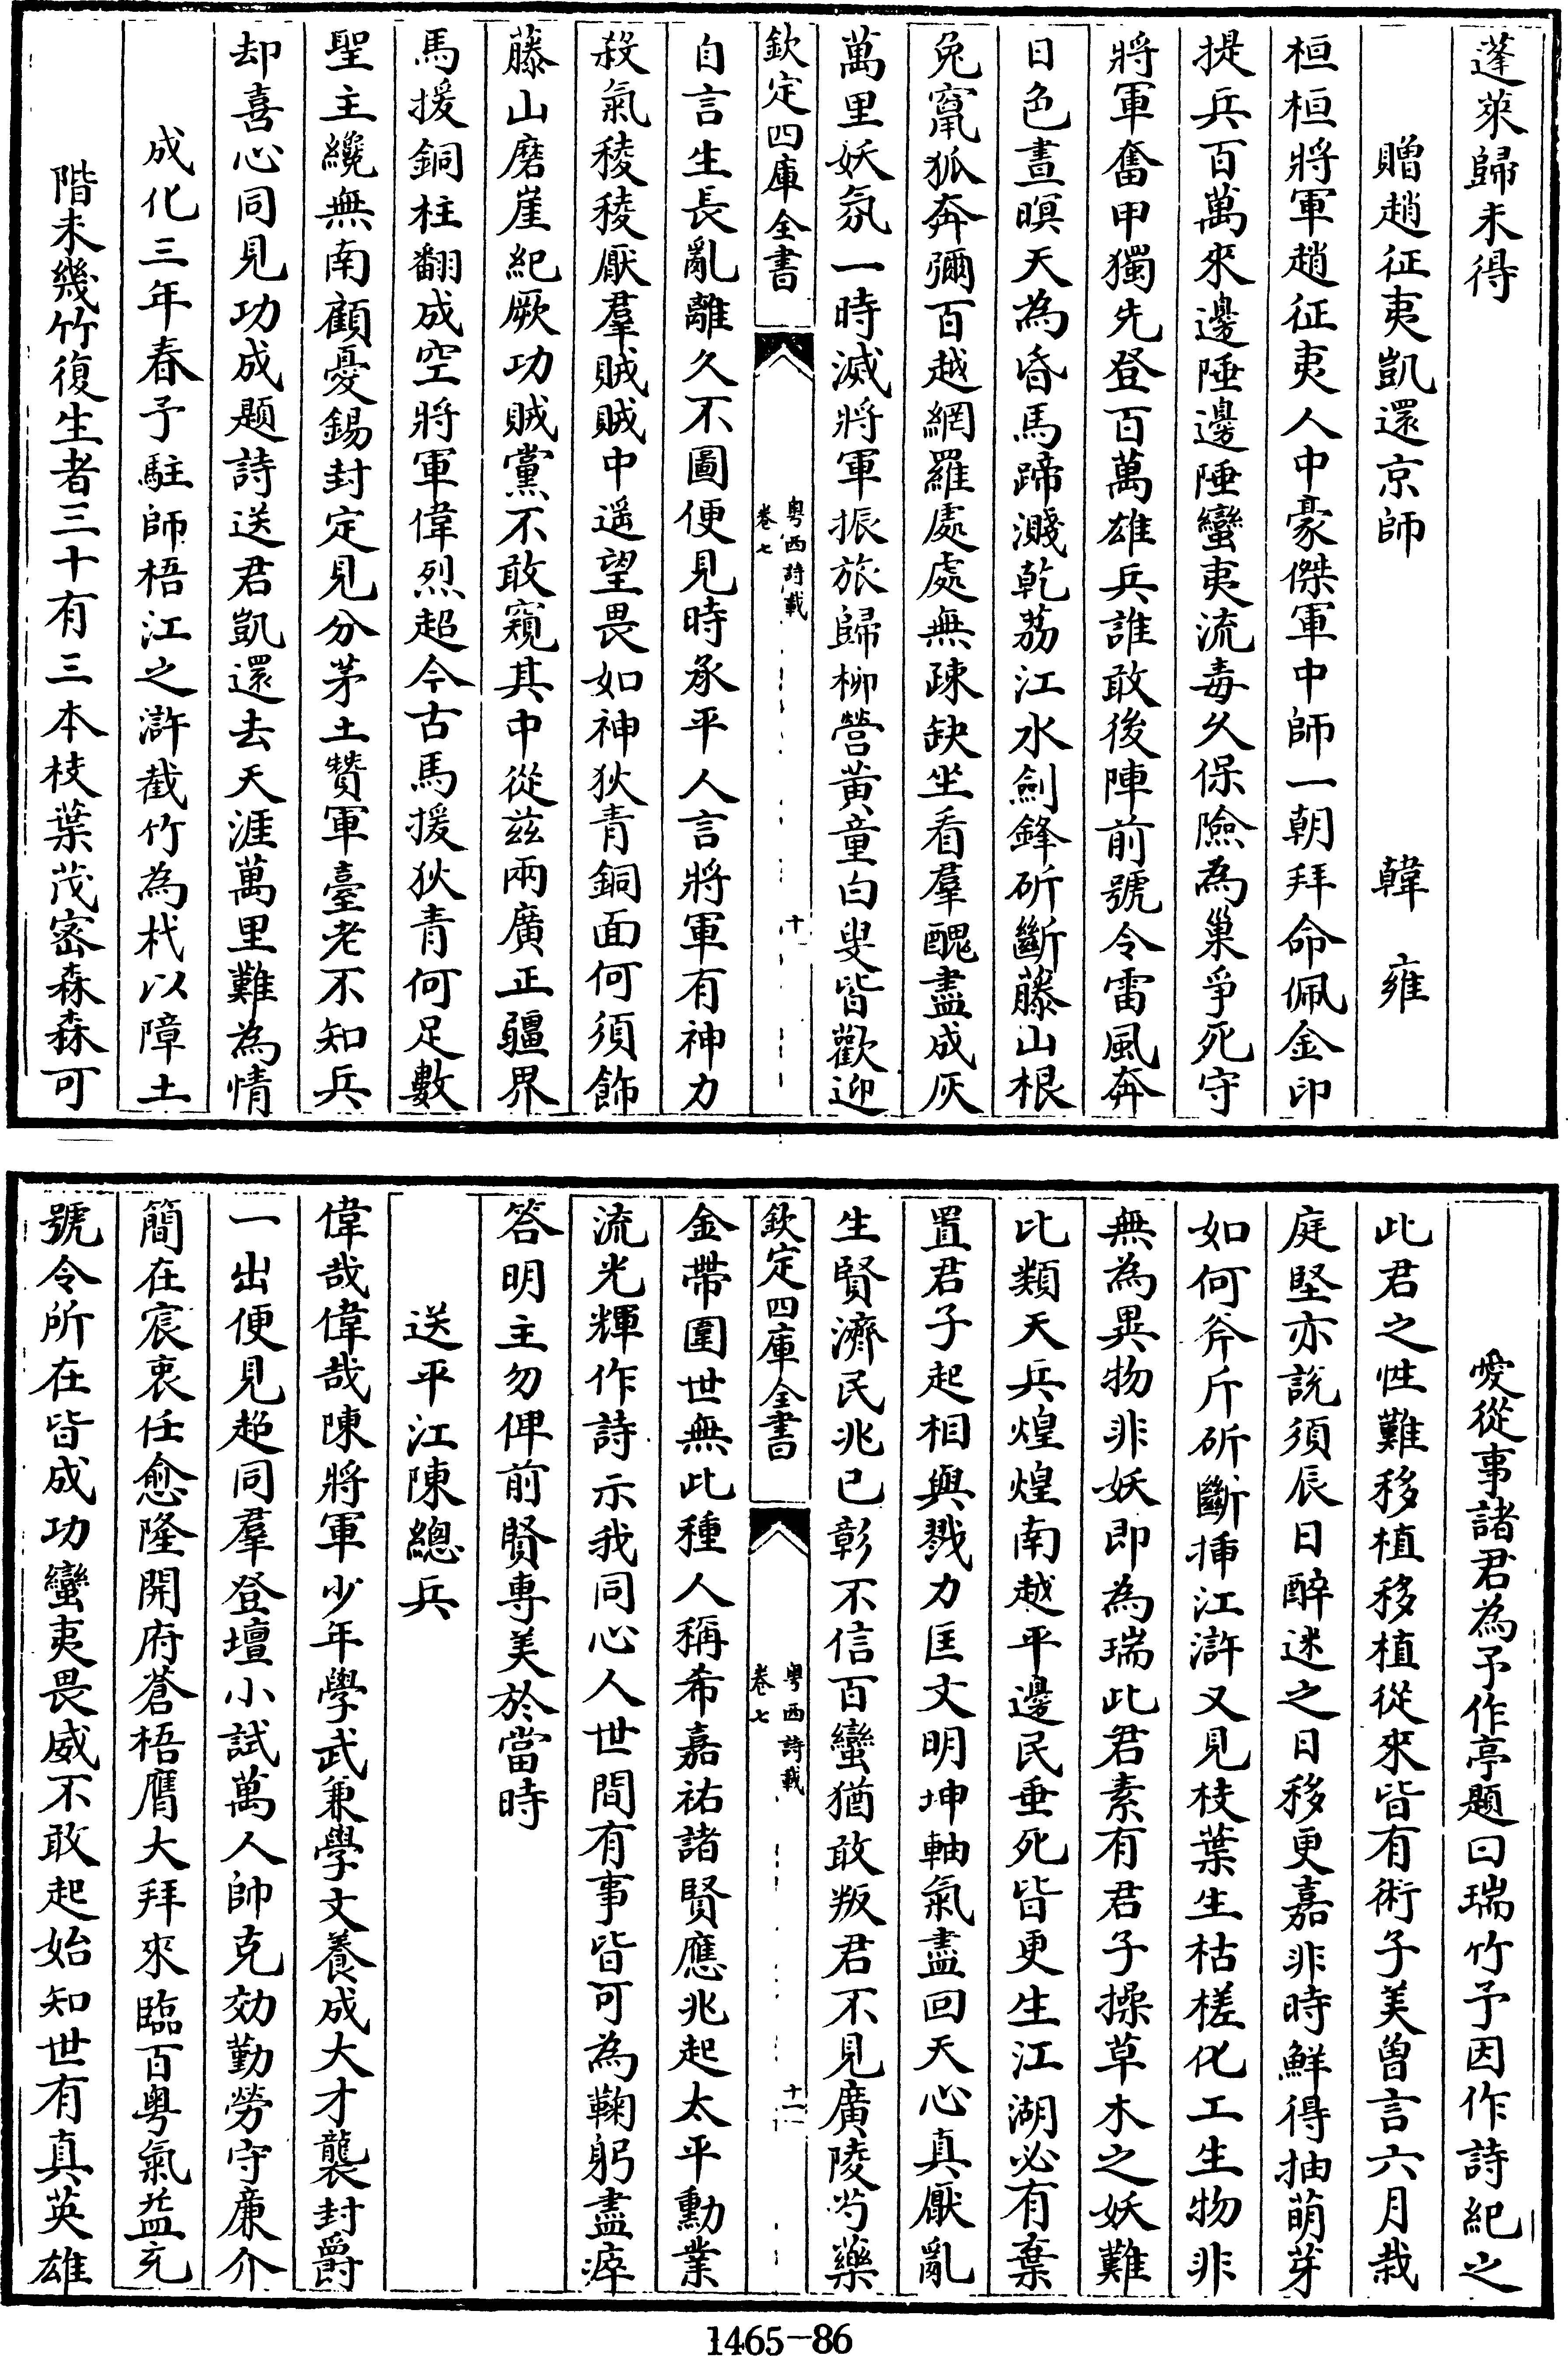 蓬萊歸未得
贈趙征夷凱還京師　韓雍
桓桓將軍趙征夷人中豪傑軍中師一朝拜命佩金印
提兵百萬來邊陲邊陲蠻夷流毒久保險為巢爭死守
將軍奮甲獨先登百萬雄兵誰敢後陣前號令雷風奔
日色晝暝天為昏馬蹄濺乾荔江水劍鋒斫斷藤山根
兔竄狐奔彌百越網羅處處無疎缺坐看羣醜盡成灰
萬里妖氛一時滅將軍振旅歸柳營黃童白叟皆歡迎
欽定四庫全書
粵西詩載
卷七
十
自言生長亂離久不圖便見時承平人言將軍有神力
殺氣稜稜厭羣賊賊中遥望畏如神狄青銅面何須飾
藤山磨崖紀厥功賊黨不敢窺其中從兹兩廣正疆界
馬援銅柱翻成空將軍偉烈超今古馬援狄青何足數
聖主纔無南顧憂錫封定見分茅土贊軍臺老不知兵
却喜心同見功成題詩送君凱還去天涯萬里難為情
成化三年春予駐師梧江之滸截竹為杙以障土
階未幾竹復生者三十有三本枝葉茂密森森可
愛從事諸君為予作亭題曰瑞竹予因作詩紀之
此君之性難移植移植從來皆有術子美曽言六月栽
庭堅亦說須辰日醉迷之日移更嘉非時鮮得抽萌芽
如何斧斤斫斷揷江滸又見枝葉生枯槎化工生物非
無為異物非妖即為瑞此君素有君子操草木之妖難
比類天兵煌煌南越平邊民垂死皆更生江湖必有棄
置君子起相與戮力匡文明坤軸氣盡回天心真厭亂
生賢濟民兆已彰不信百蠻猶敢叛君不見廣陵芍藥
欽定四庫全書
粵西詩載
卷七
十一
金帶圍世無此種人稱希嘉祐諸賢應兆起太平勳業
流光輝作詩示我同心人世間有事皆可為鞠躬盡瘁
答明主勿俾前賢專美於當時
送平江陳總兵
偉哉偉哉陳將軍少年學武兼學文養成大才襲封爵
一出便見超同羣登壇小試萬人帥克効勤勞守廉介
簡在宸衷任愈隆開府蒼梧膺大拜來臨百粵氣益充
號令所在皆成功蠻夷畏威不敢起始知世有真英雄
1465-86